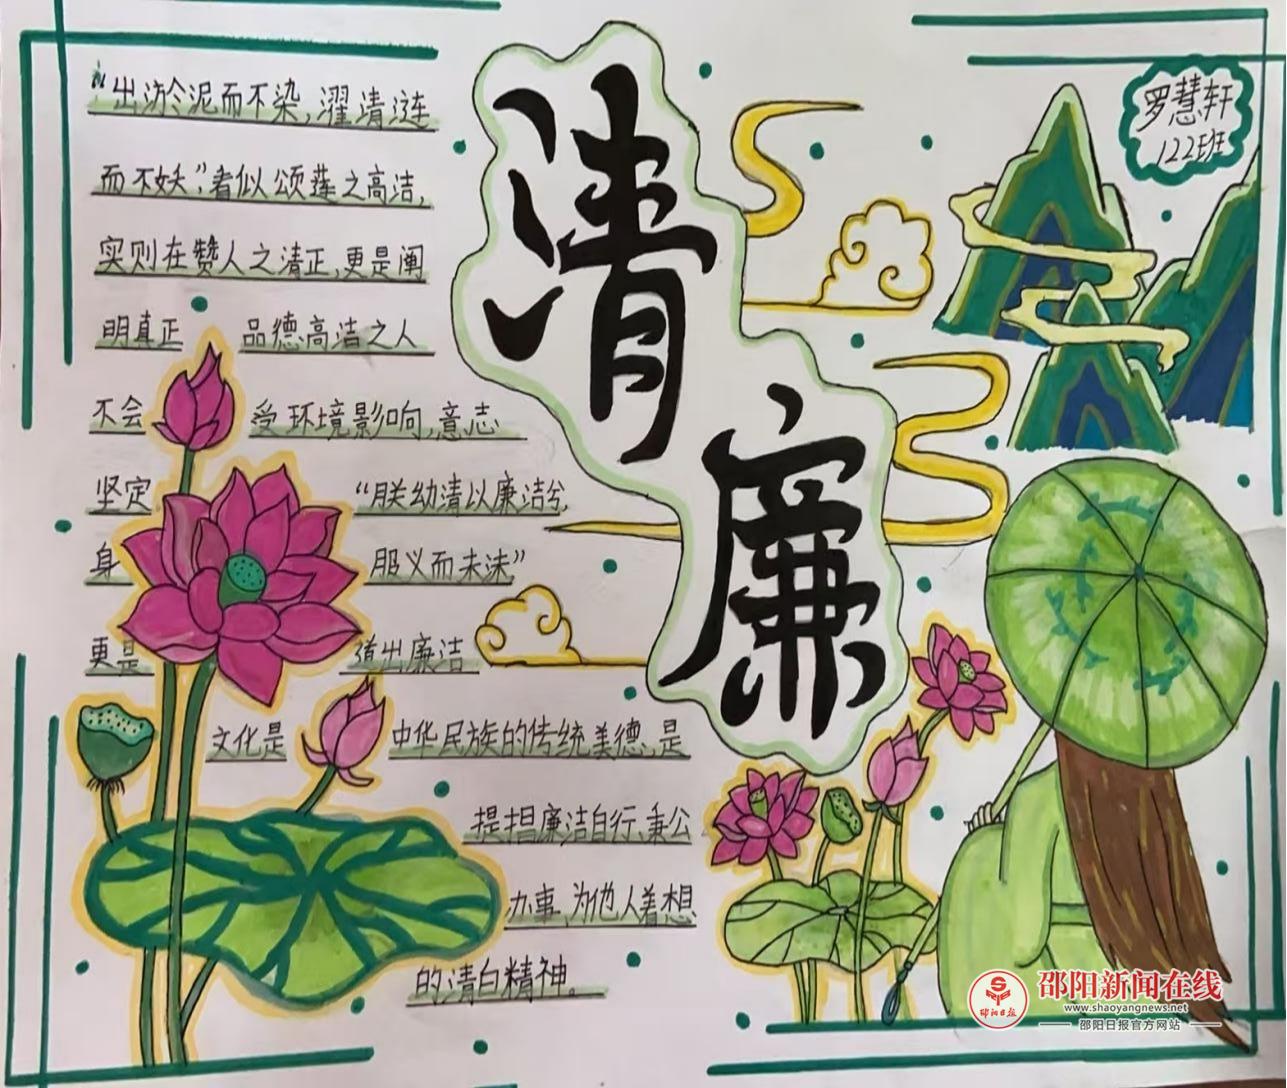 “出淤泥而不染,濯清涟
而不妖”,看似颂莲之高洁,
实则在赞人之清正,更是阐
明真正 品德高洁之人
不会 受环境影响,意志
坚定 “朕幼清以廉洁兮,
身 服义而未沬”
更是 道出廉洁
文化是 中华民族的传统美德,是
提捛廉洁自行、秉公
办事,为他人着想
的清白精神。
清
廉
罗慧轩
122班
邵阳新闻在线
www.shaoyangnews.net
邵阳日报官方网站
邵阳日报